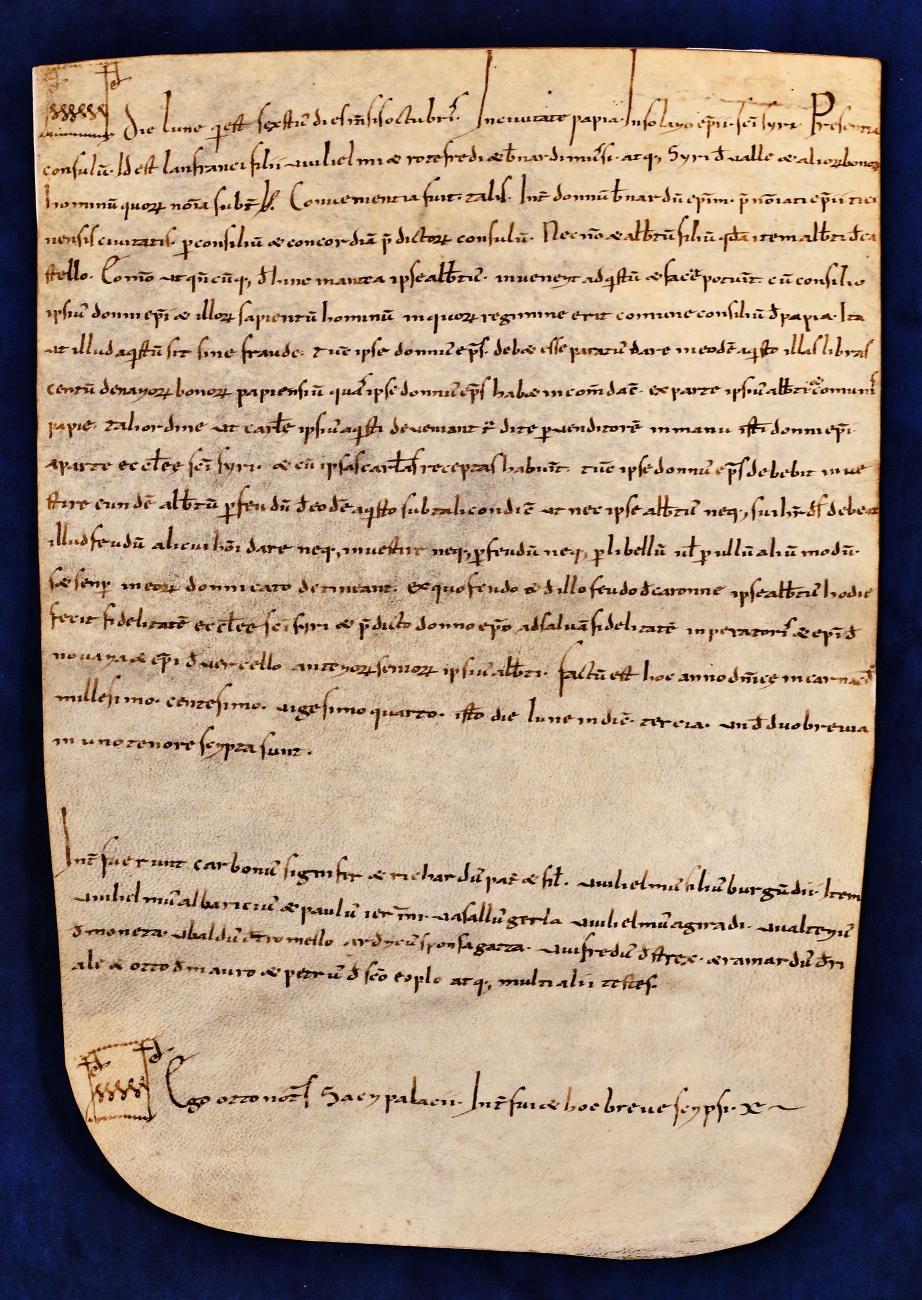 Die lune qi est sextus dies msis octubris. In civitate papia. In solario epii. sci syri. Presentia
consulū. Id est lanfranci filii Vuilielmi & rotefredi & bnardi atq; Syri d valle & aliorum bonorum
hominū quorum noīa subt Convenientia fuit. talis. Int domnū bnardū epm. p noīati epii tici
nensis civitatis. p consiliū & concordiā p dictorum consulū. Nec nō & albtū filiū. qda item albti d ca
stello. Eo mō ut qn cū q; d hinc in antea ipse albtus. invenerit adqstū & facē potuit. cū consilio
ipsius domni epi & illorum sapientū hominū in quorum regimine erit comune consiliū d papia. Ita
ut illud aqstū sit sine fraude. tūc ipse domnus eps. deb& esse paratus dare in eodē aqsto illas libras
centū denariorum bonorum papiensiū quas ipse domnus eps hab& in comdatē. ex parte ipsius albti & comunis
papie. tali ordine ut cartle ipsius aqsti deveniant dite p venditorē in manu isti domni epi.
a parte eccłee sci syri. & cū ipsas cartlas receptas habuit. tūc ipse domnus eps debebit inve
stire eundē albtū p feudū d eodē aqsto sub tali condiē ut nec ipse albtus neq; sui debeat
illud feudū alicui hoī dare neq; investire neq; p feudū neq; p libellū ul p ullū aliū modū.
s& senp in eorum domnicato detineant. ex quo feudo & d illo feudo d caronne ipse albtus hodie
fecit fidelitatē eccłee sci syri & p dicto domno epo ad salvā fidelitatē inperatoris & epi d
novaria & epi d vercello anteriorum seniorum ipsius albti. factū est hoc anno dnice incarnacis
millesimo. centesimo. vigesimo quarto. isto die lune indic. tercia. und duo brevia
in uno tenore scripta sunt.
Int fuerunt carbonus signifer & richardus pat & fil. Vuilielmus filius burgūdii. Item
Vuilielmus albaricius & paulus ier vasallus gerla Vuilielmus agiradi. Vualterius
d moneta. Ubaldus mello ardricus sponsa gatta. Vuifredus d strex. & rainardus d ri
ale & otto d mauro & petrus d sco eoplo atq; multi alii testes.
Ego otto not Sacri palacii. Int fui & hoc breve scripsi.